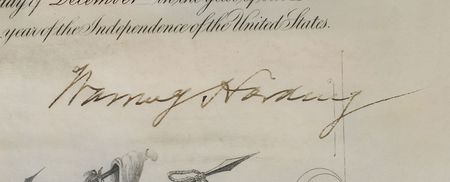 day of December in the year of
year of the Independence of the United States.
Warren G Harding